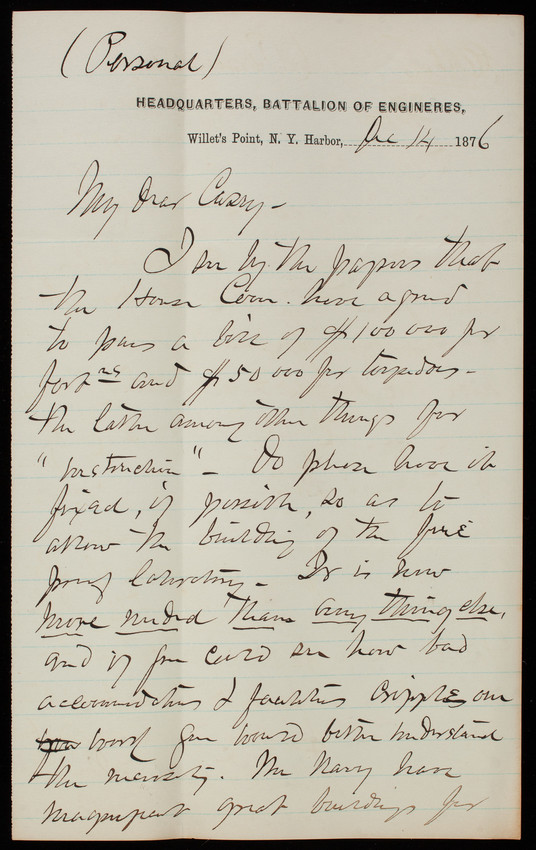 (Personal)
HEADQUARTERS, BATTALION OF ENGINERES,
Willet's Point, N. Y. Harbor, Dec 14 1876
My dear Casey -
I see by the papers that
the House Com. have agreed
to pass a bill of $100 000 for
fortns and $50 000 for torpedoes -
the latter among other things for
"instruction" - Do please have it
fixed, if possible, so as to
allow the building of the fire
proof laboratory - It is now
more needed than any thing else,
and if you could see how bad
accommodations & facilities cripple our
work you would better understand
the necessity. The Navy have
magnificent great buildings for